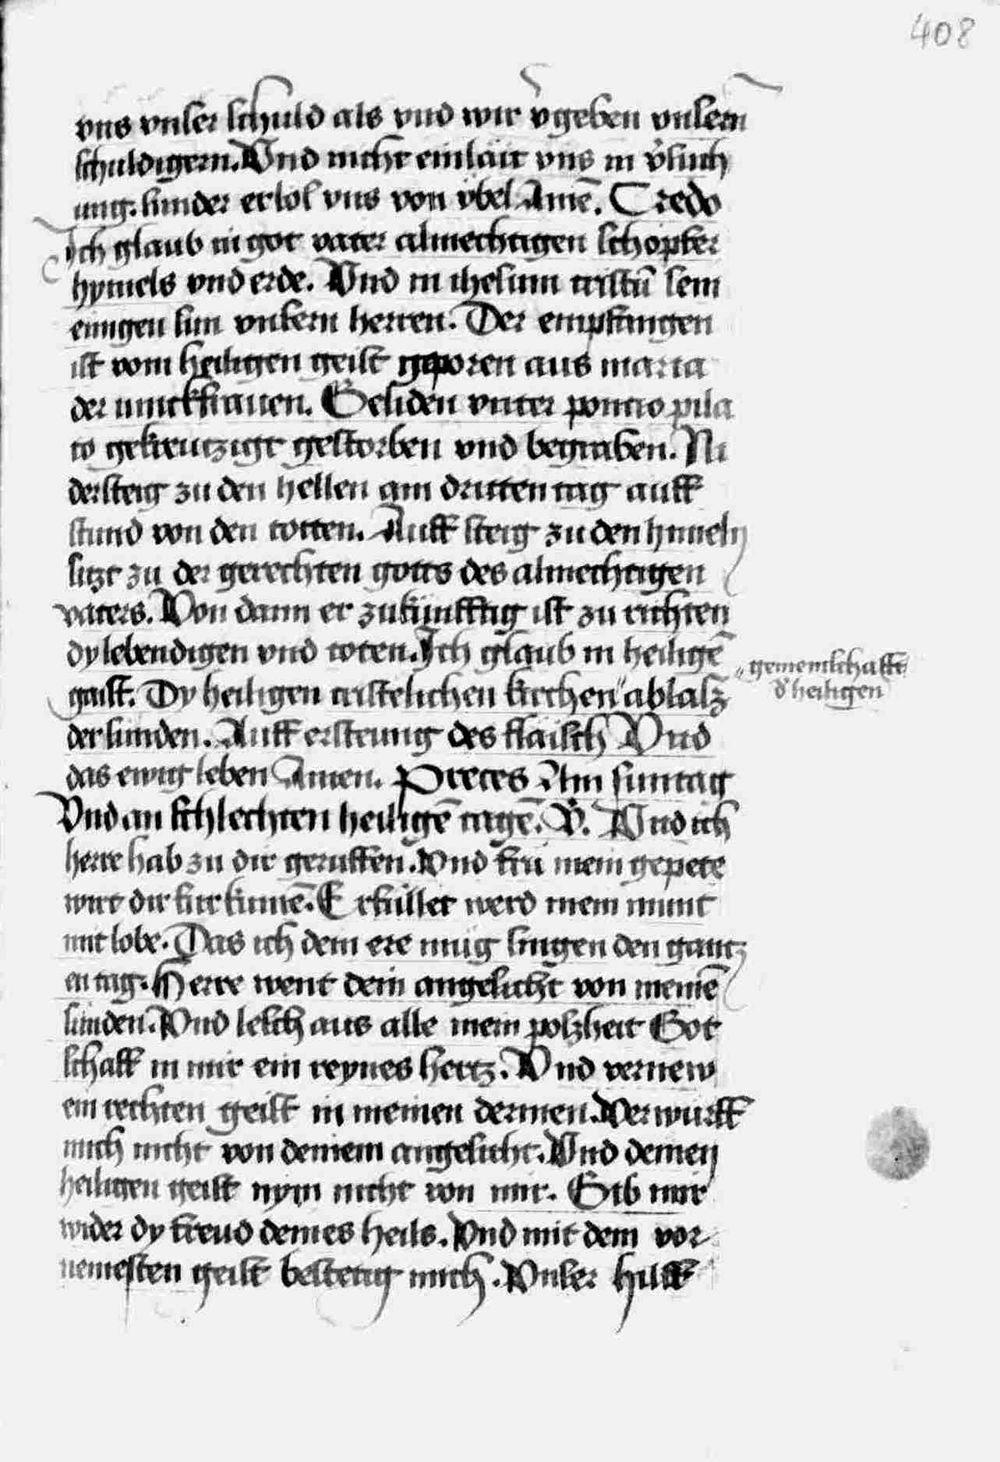 408
vns vnser schuld als vnd wir v̄geben vnsern
schuldigern. Vnd nicht einlait vns in v̄such
ung. sunder erlos vns von vbel Amē. Credo
Ich glaub in got vater almechtigen schopfer
hymels vnd erde. Vnd in ihesum cristū sein
einigen sun vnsern herren. Der empfangen
ist vom heiligen geist geporen aus maria
der iunckfrauen. Geliden vnter poncio pila
to gekreutzigt gestorben vnd begraben. Ni
dersteig zu den hellen am dritten tag auff
stund von den totten. Auff steig zu den himeln
sitzt zu der gerechten gotts des almechtigen
vaters. Von dann er zukunfftig ist zu richten
dy lebendigen vnd toten. Ich glaub in heiligē
gaist. Dy heiligen cristelichen kirchen " ablasz
" gemeinschafft
d' heiligen
der sunden. Auff ersteung des flaisch Vnd
das ewig leben Amen. Preces Am suntag
Vnd an schlechten heiligē tagē. V. Vnd ich
herre hab zu dir geruffen. Vnd fru mein gepete
wirt dir fur kumē. Erfullet werd mein munt
mit lobe. Das ich dein ere mug singen den gantz
en tag. Herre went dein angesicht von meinē
sunden. Vnd lesch aus alle mein poszheit Got
schaff in mir ein reynes hertz. Vnd vernew
ein rechten geist in meinen dermen. Verwurff
mich nicht von deinem angesicht. Vnd deinen
heiligen geist nym nicht von mir. Gib mir
wider dy freud deines heils. Vnd mit dem vor
nemesten geist bestetig mich. Vnser hilff